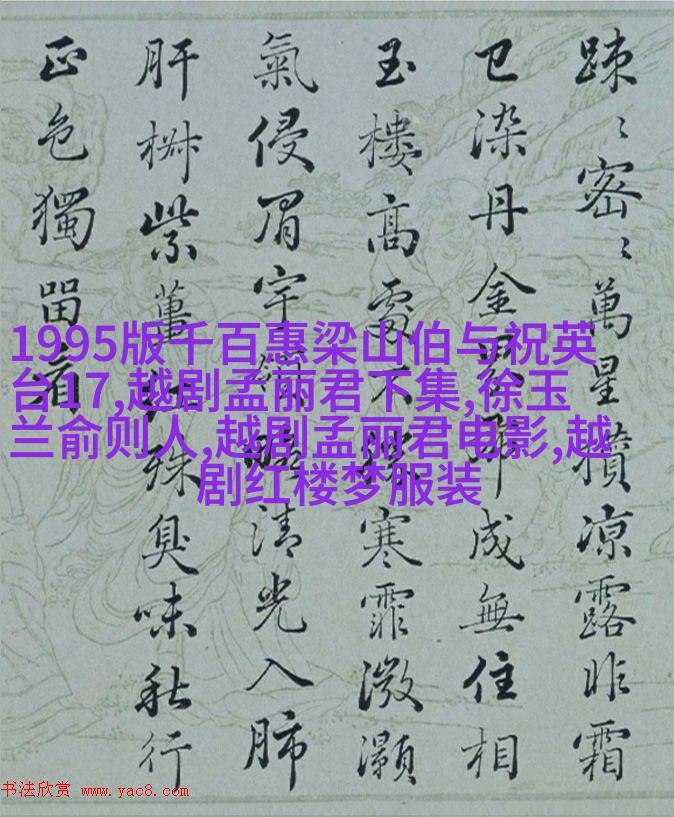 踈〻密〻萬星攢凉露昨霜
已染丹金成無住相
玉樓高處不勝寒霏溦灝
氣侵眉宇清光入肺
肝紫殊臭味秋行
正色獨留看
1995版千百惠梁山伯与祝英
台17,越剧孟丽君下集,徐玉
兰俞则人,越剧孟丽君电影,越
剧红楼梦服装
书法欣赏 www.yac8.com